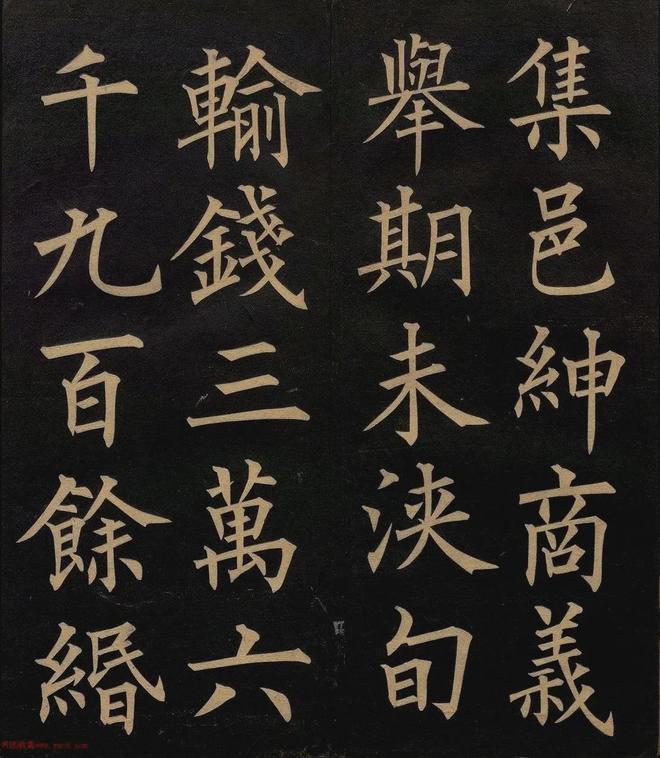 集邑紳商義
舉期未浹旬
輸錢三萬六
千九百餘緡